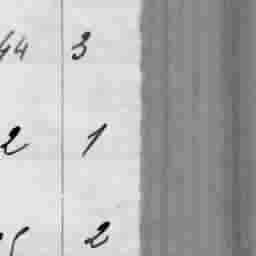 44 3
2 1
2